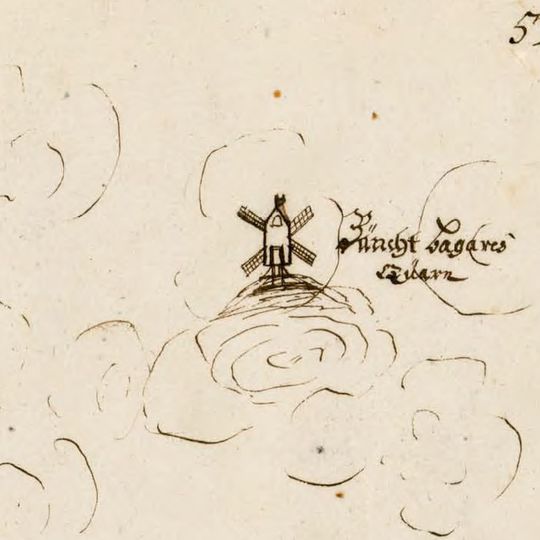 5
Bäncht bagares
Quarn